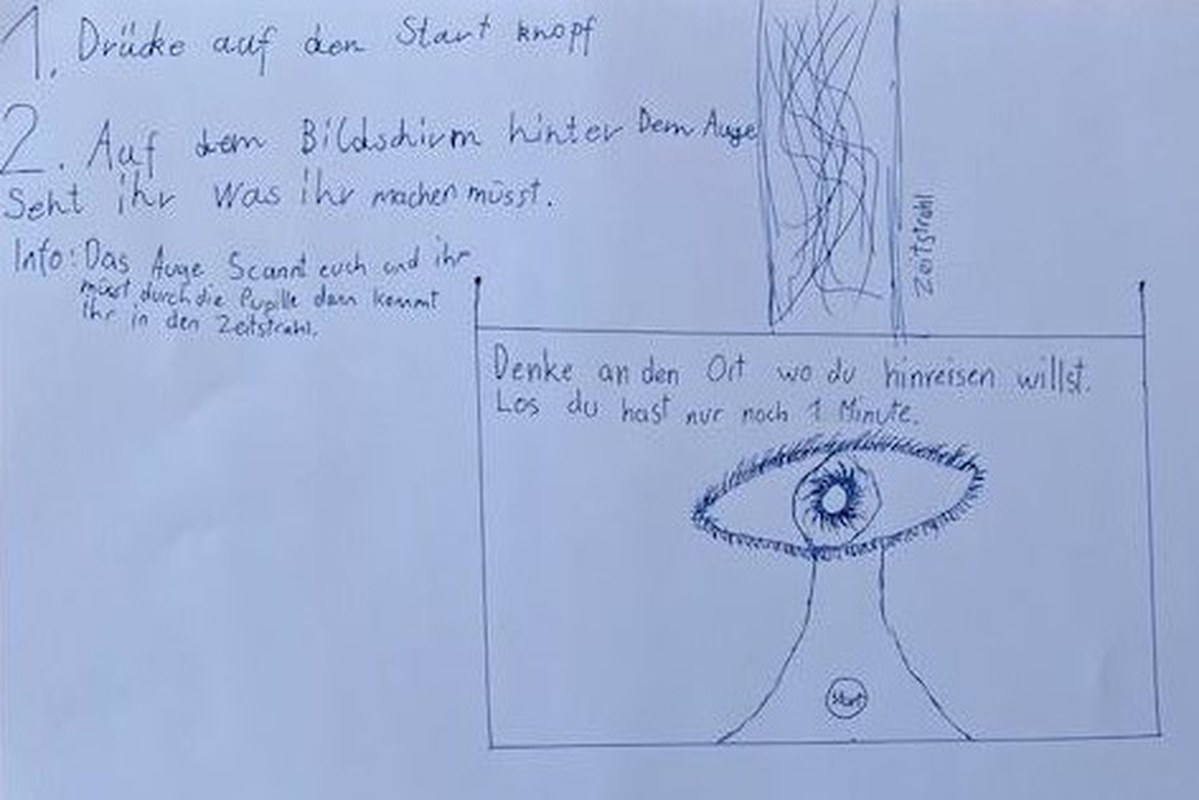 1. Drücke auf den Start knopf
2. Auf dem Bildschirm hinter Dem Auge
Seht ihr Was ihr machen müsst.
Info: Das Auge Scannt euch und ihr
müsst durch die Pupille dann kommt
Ihr in den Zeitstrahl.
Zeitstrahl
Denke an den Ort wo du hinreisen willst.
Los du hast nur noch 1 Minute.
Start